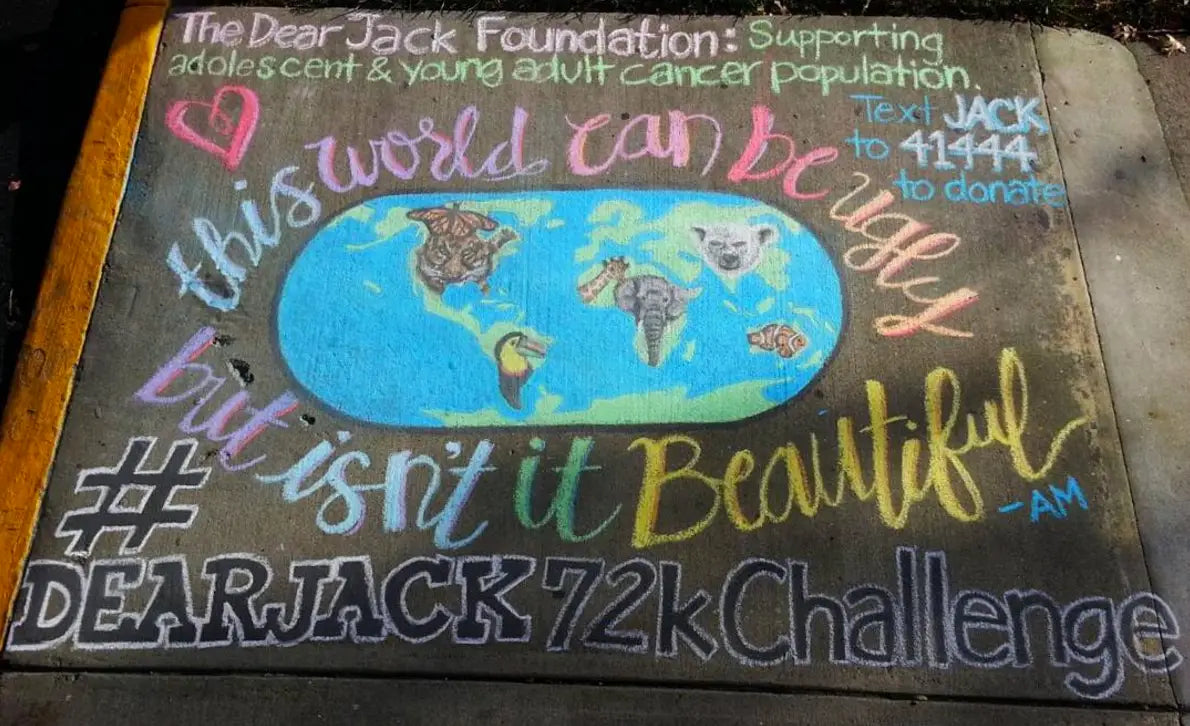 The Dear Jack Foundation: Supporting
adolescent & young adult cancer population.
Text JACK
to 41444
to donate
this world can be ugly
but isn't it Beautiful
-AM
#
DEARJACK 72k Challenge